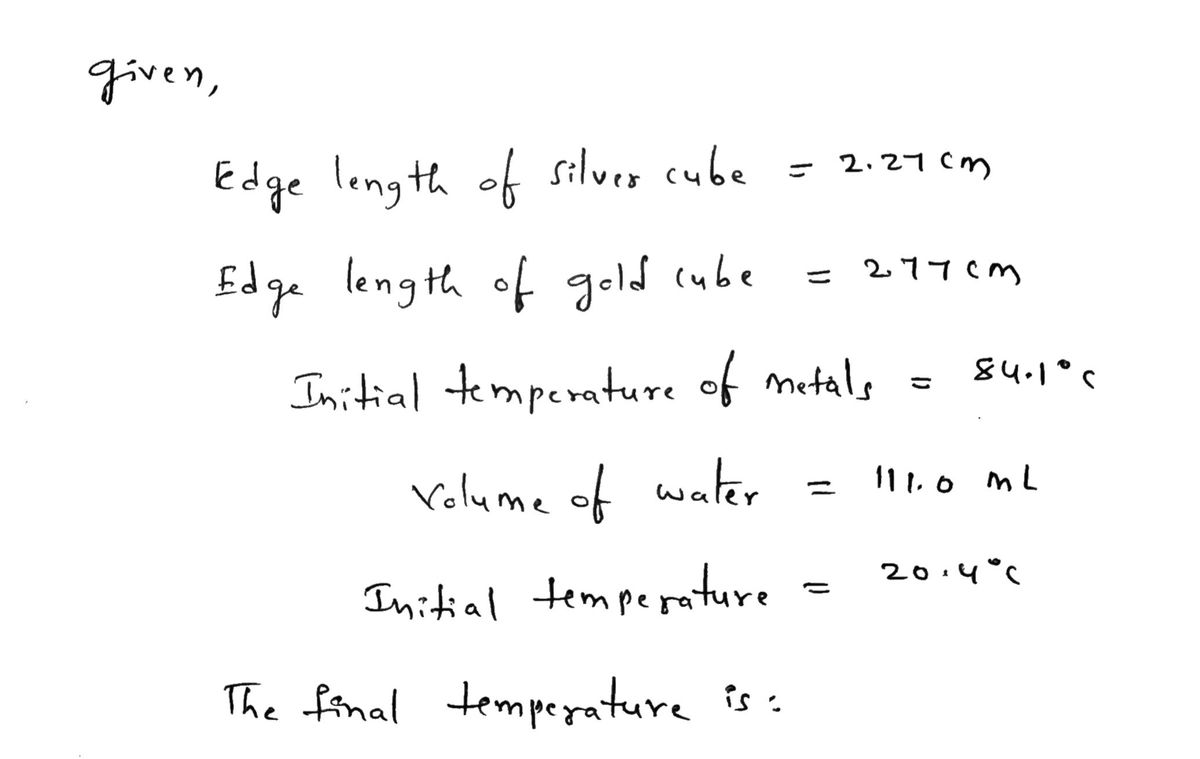 given,
Edge length of silver cube = 2.27 cm
Edge length of gold cube = 2.77 cm
Initial temperature of metals = 84.1°c
Volume of water = 111.0 mL
Initial temperature = 20.4°c
The final temperature is :